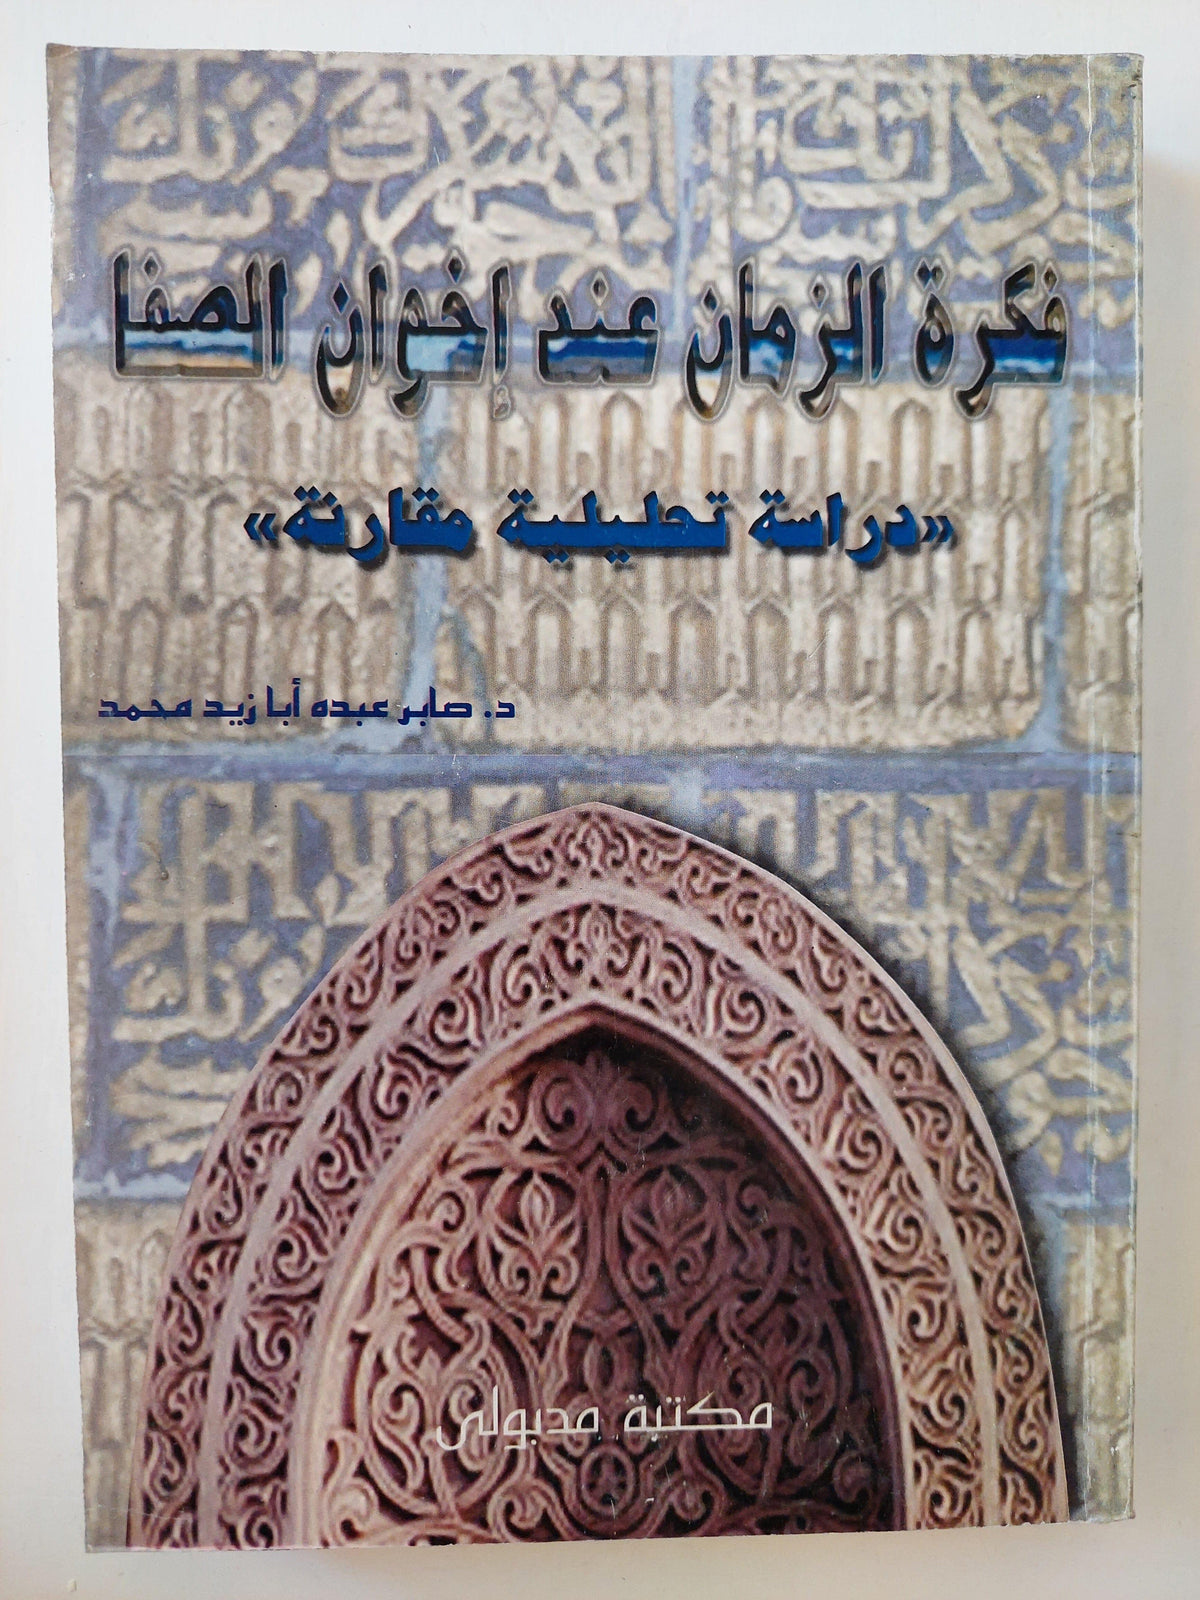 فكرة الزمان عند إخوان الصفا
«دراسة تحليلية مقارنة»
د. صابر عبده أبا زيد محمد
مكتبة مدبولى